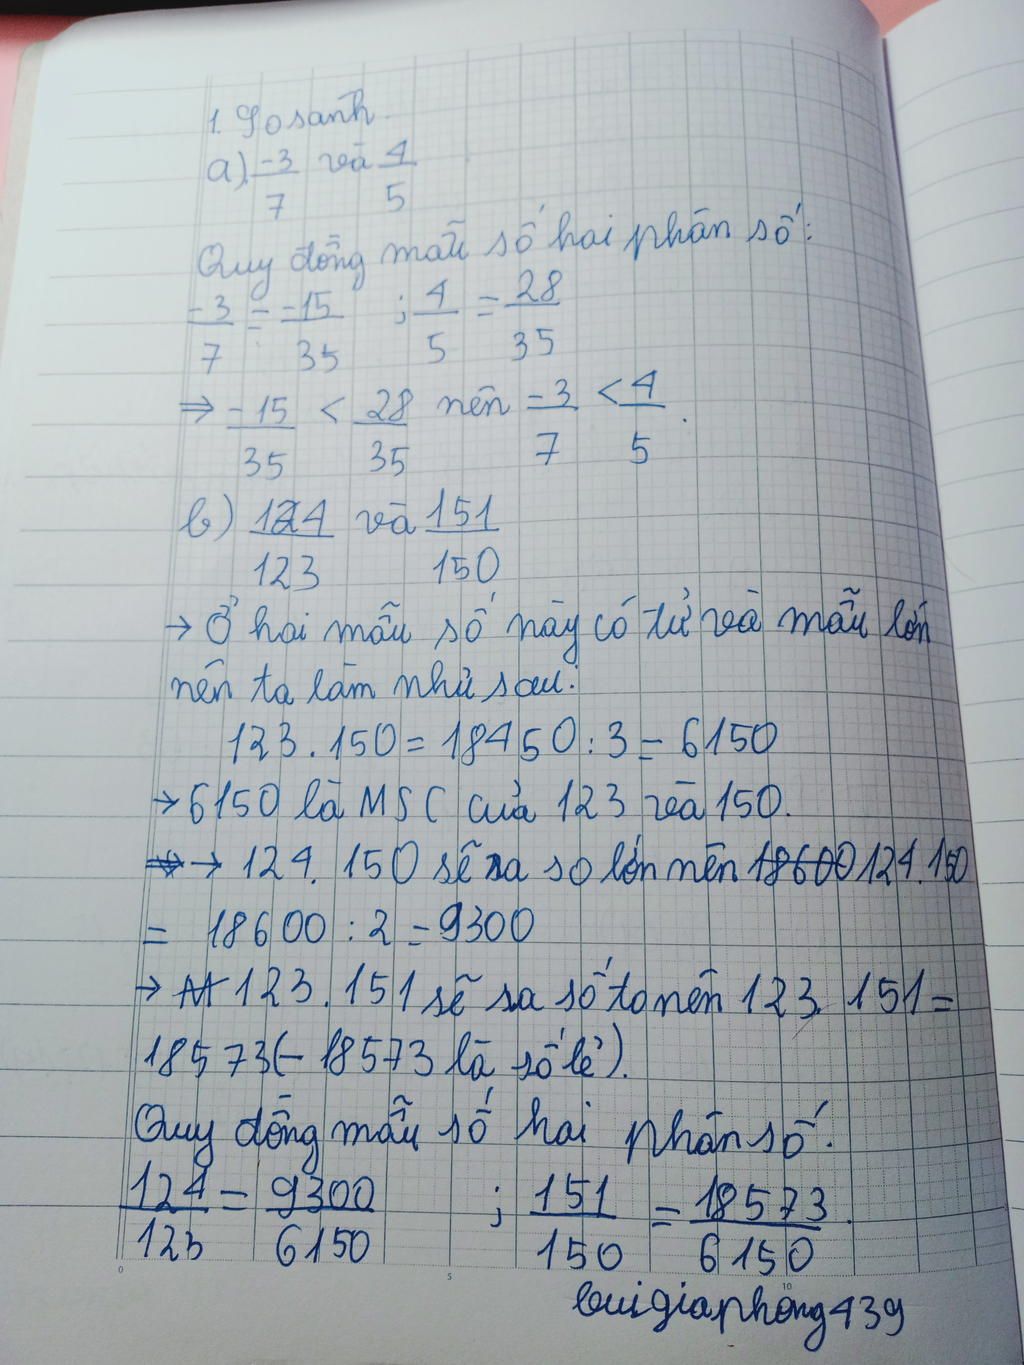 1. So sanh
a) -3/7 và 4/5
Quy đồng mẫu số hai phân số:
-3/7 = -15/35 ; 4/5 = 28/35
⇒ -15/35 < 28/35 nên -3/7 < 4/5.
b) 124/123 và 151/150
→ Ở hai mẫu số này có tử và mẫu lớn
nên ta làm như sau:
123.150 = 18450 : 3 = 6150
→ 6150 là MSC của 123 và 150.
→ 124.150 sẽ ra so lớn nên 18600 124.150
= 18600 : 2 = 9300
→ 123.151 sẽ ra số to nên 123.151 =
18573 (- 18573 là số lẻ).
Quy đồng mẫu số hai phân số.
124/123 = 9300/6150 ; 151/150 = 18573/6150.
0 5 10
buigiaphong439